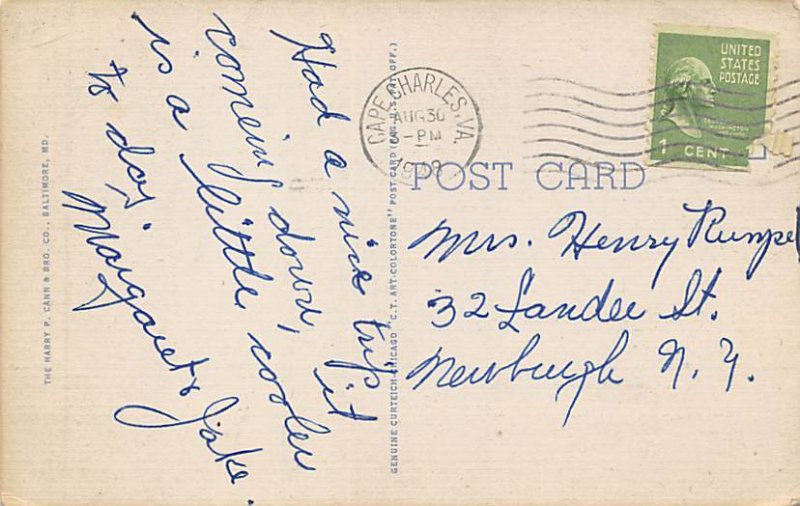 Had a nice trip
comeing down, it
is a little cooler
to day.
Margaret & Jake.
THE HARRY P. CANN & BRO. CO., BALTIMORE, MD.
GENUINE CURTEICH-CHICAGO "C.T. ART-COLORTONE" POST CARD (REG. U.S. PAT. OFF.)
CAPE CHARLES, VA.
AUG 30
PM
UNITED
STATES
POSTAGE
1 CENT
POST CARD
Mrs. Henry Rumpe
32 Lander St.
Newburgh N. Y.